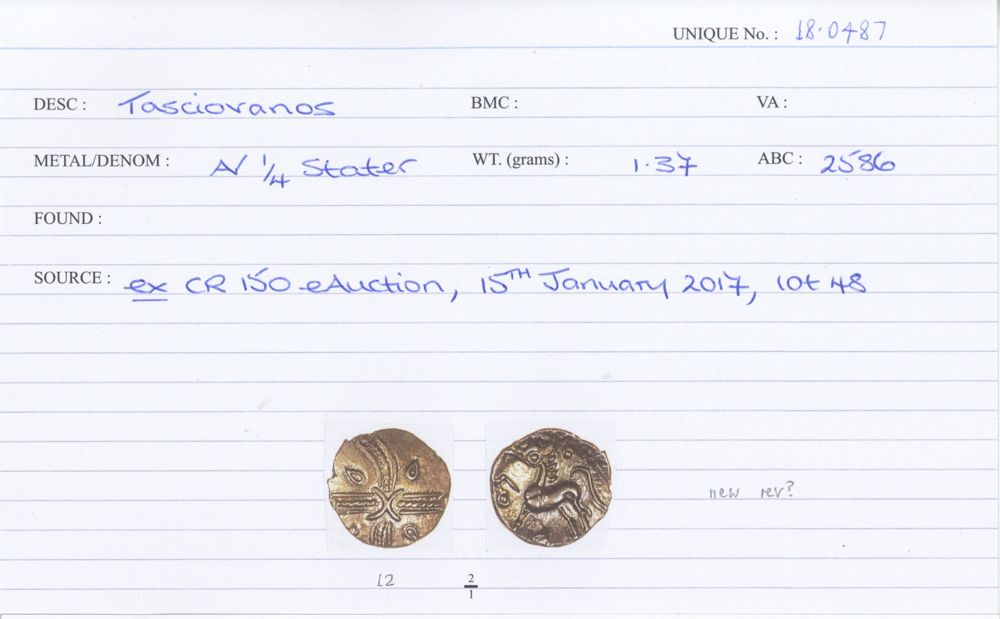 UNIQUE No. : 18·0487
DESC : Tasciovanos BMC : VA :
METAL/DENOM : A/ 1/4 Stater WT. (grams) : 1·37 ABC : 2586
FOUND :
SOURCE : ex CR 150 eAuction, 15TH January 2017, lot 48
new rev?
12 2/1